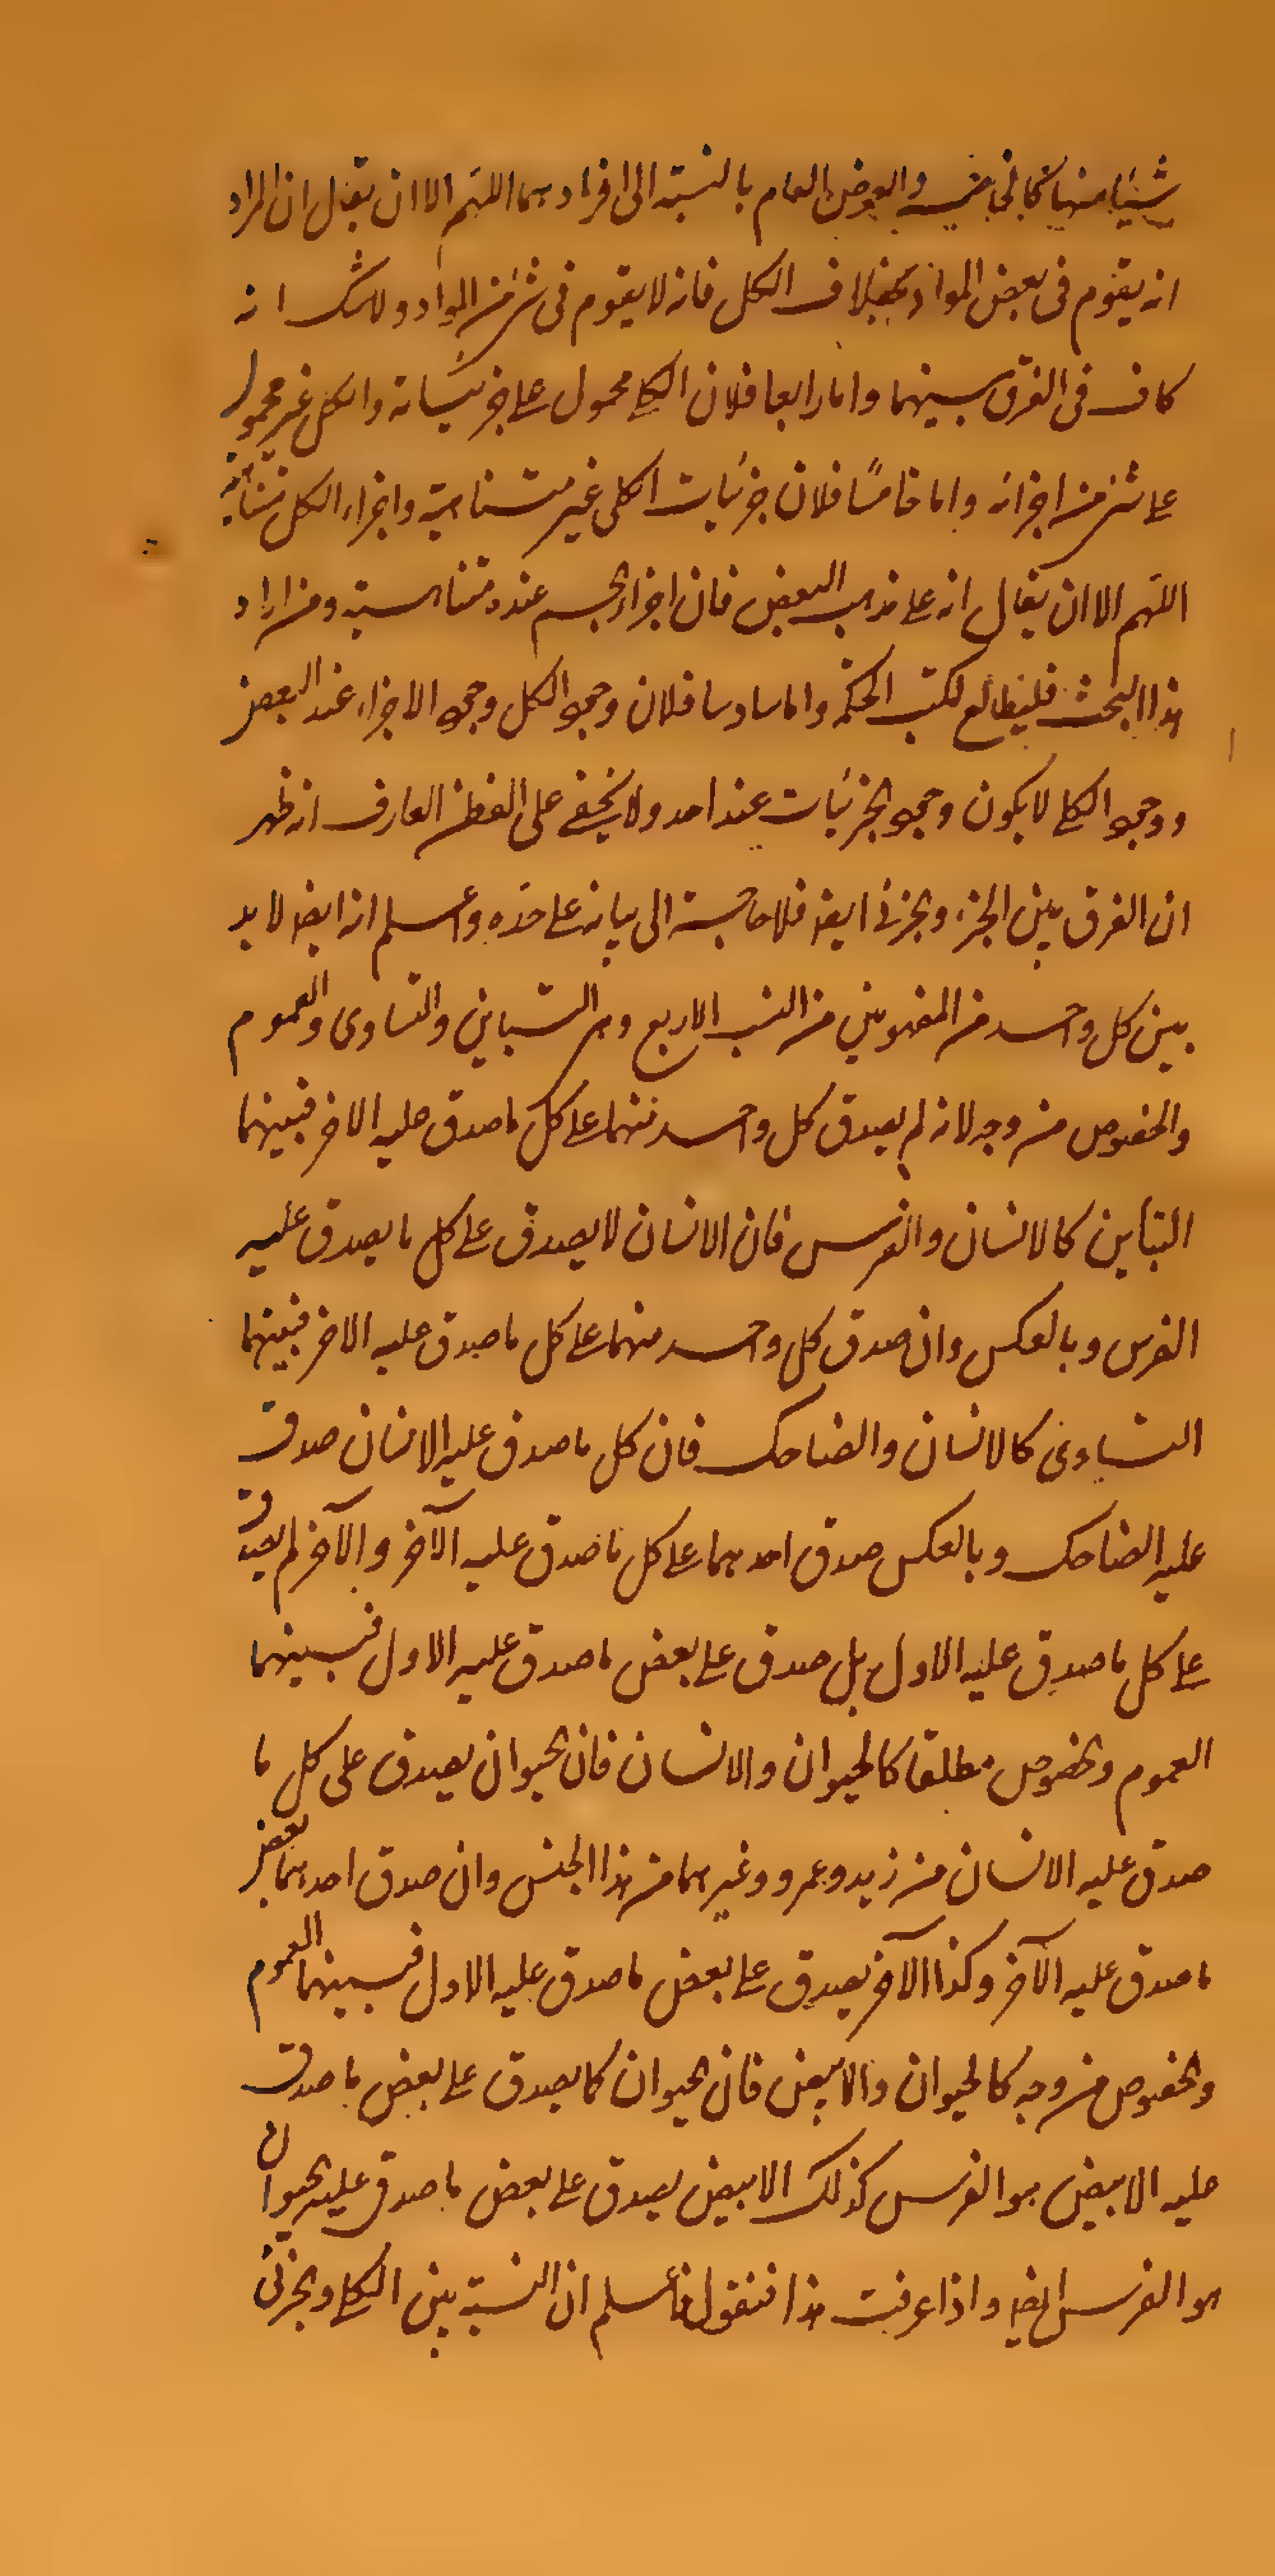 شيئا منها كما في الخاصة والعرض العام بالنسبة الى افرادهما اللهم الا ان يقال ان المراد
انه يقوم فى بعض المواد بخلاف الكل فانه لا يقوم فى شئ من المواد ولا شك انه
كاف فى الفرق بينهما واما رابعا فلان الكلى محمول على جزئياته والكل غير محمول
على شئ من اجزائه واما خامسًا فلان جزئيات الكلى غير متناهية واجزاء الكل متناهية
اللهم الا ان يقال انه على مذهب البعض فان اجزاء الجسم عنده متناهية ومن اراد
هذا البحث فليطالع لكتب الحكمة واما سادسا فلان وجود الكل وجود الاجزاء عند البعض
ووجود الكلى لا يكون وجود الجزئيات عند احد ولا يخفى على الفطن العارف انه ظهر
ان الفرق بين الجزء والجزئى ايضا فلا حاجة الى بيانه على حده واعلم انه ايضا لا بد
بين كل واحد من المفهومين من النسب الاربع وهى التباين والتساوى والعموم
والخصوص من وجه لانه لم يصدق كل واحد منهما على كل ما صدق عليه الاخر فبينهما
التباين كالانسان والفرس فان الانسان لا يصدق على كل ما يصدق عليه
الفرس وبالعكس وان صدق كل واحد منهما على كل ما صدق عليه الاخر فبينهما
التساوى كالانسان والضاحك فان كل ما صدق عليه الانسان صدق
عليه الضاحك وبالعكس صدق احدهما على كل ما صدق عليه الآخر والآخر لم يصدق
على كل ما صدق عليه الاول بل صدق على بعض ما صدق عليه الاول فبينهما
العموم والخصوص مطلقا كالحيوان والانسان فان الحيوان يصدق على كل ما
صدق عليه الانسان من زيد وعمرو وغيرهما من هذا الجنس وان صدق احدهما بعض
ما صدق عليه الآخر وكذا الآخر يصدق على بعض ما صدق عليه الاول فبينهما العموم
والخصوص من وجه كالحيوان والابيض فان الحيوان كما يصدق على بعض ما صدق
عليه الابيض هو الفرس كذلك الابيض يصدق على بعض ما صدق عليه الحيوان
هو الفرس ايضا واذا عرفت هذا فنقول فاعلم ان النسبة بين الكلى والجزئى